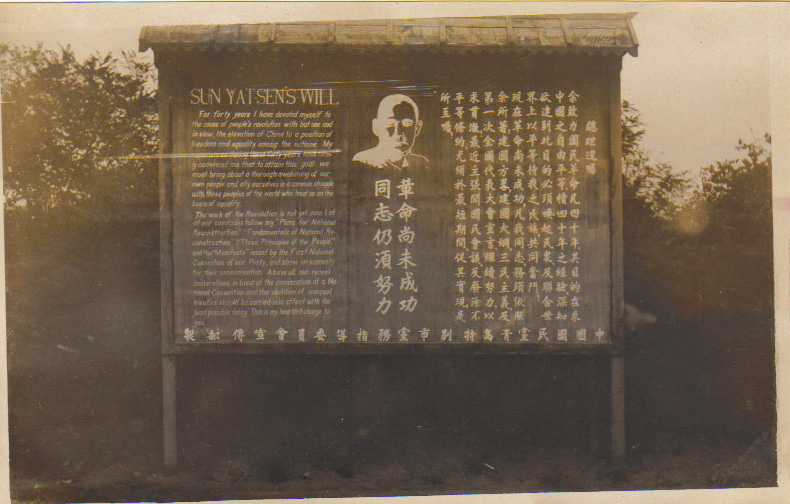 SUN YATSEN'S WILL
For forty years I have devoted myself to
the cause of people's revolution with but one end
in view, the elevation of China to a position of
freedom and equality among the nations. My
experiences during these forty years have firm-
ly convinced me that to attain this goal we
must bring about a thorough awakening of our
own people and ally ourselves in a common struggle
with those peoples of the world who treat us on the
basis of equality.
The work of the Revolution is not yet done. Let
all our comrades follow my "Plans for National
Reconstruction," "Fundamentals of National Re-
construction," "Three Principles of the People,"
and the "Manifesto" issued by the First National
Convention of our Party, and strive on earnestly
for their consummation. Above all, our recent
declarations in favor of the convocation of a Na-
tional Convention and the abolition of unequal
treaties should be carried into effect with the
least possible delay. This is my heartfelt charge to
you.
革命尚未成功
同志仍須努力
總理遺囑
余致力國民革命凡四十年其目的在求
中國之自由平等積四十年之經驗深知
欲達到此目的必須喚起民衆及聯合世
界上以平等待我之民族共同奮鬥
現在革命尚未成功凡我同志務須依照
余所著建國方畧建國大綱三民主義及
第一次全國代表大會宣言繼續努力以
求貫澈最近主張開國民會議及廢除不
平等條約尤須於最短期間促其實現是
所至囑
中國國民黨青島特別市黨務指導委員會宣傳部製